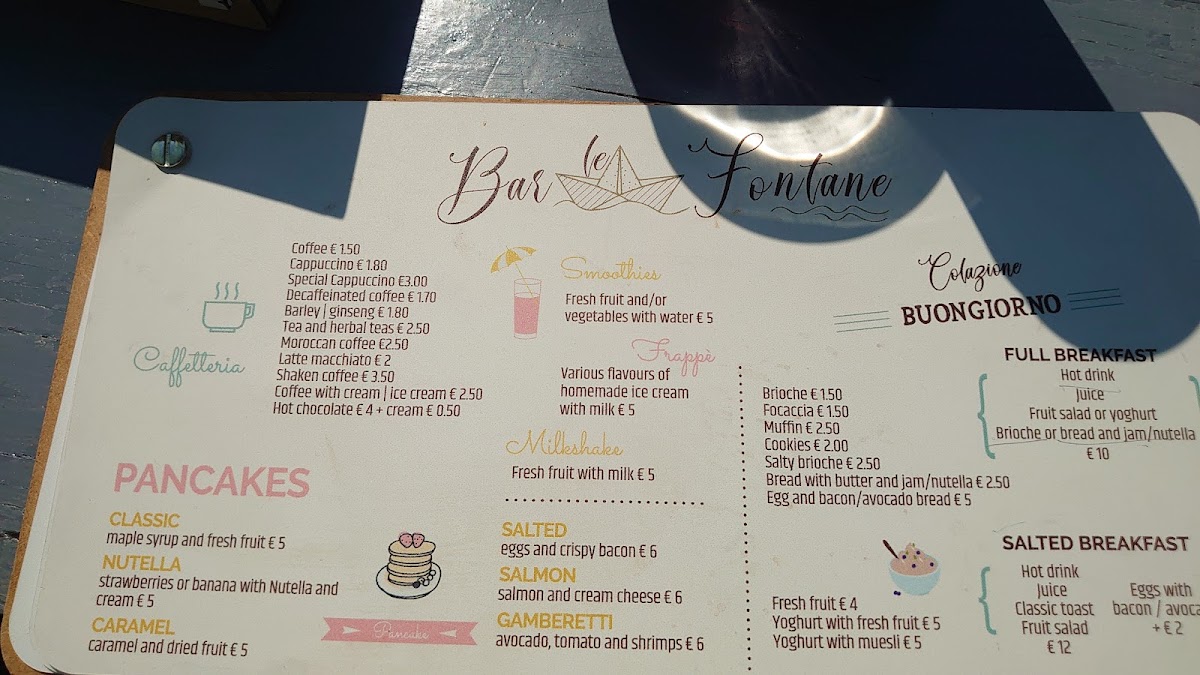 Bar le Fontane
Caffetteria
Coffee € 1.50
Cappuccino € 1.80
Special Cappuccino €3.00
Decaffeinated coffee € 1.70
Barley | ginseng € 1.80
Tea and herbal teas € 2.50
Moroccan coffee €2.50
Latte macchiato € 2
Shaken coffee € 3.50
Coffee with cream | ice cream € 2.50
Hot chocolate € 4 + cream € 0.50
Smoothies
Fresh fruit and/or
vegetables with water € 5
Frappè
Various flavours of
homemade ice cream
with milk € 5
Milkshake
Fresh fruit with milk € 5
PANCAKES
CLASSIC
maple syrup and fresh fruit € 5
NUTELLA
strawberries or banana with Nutella and
cream € 5
CARAMEL
caramel and dried fruit € 5
Pancake
SALTED
eggs and crispy bacon € 6
SALMON
salmon and cream cheese € 6
GAMBERETTI
avocado, tomato and shrimps € 6
Colazione
BUONGIORNO
Brioche € 1.50
Focaccia € 1.50
Muffin € 2.50
Cookies € 2.00
Salty brioche € 2.50
Bread with butter and jam/nutella € 2.50
Egg and bacon/avocado bread € 5
Fresh fruit € 4
Yoghurt with fresh fruit € 5
Yoghurt with muesli € 5
FULL BREAKFAST
Hot drink
Juice
Fruit salad or yoghurt
Brioche or bread and jam/nutella
€ 10
SALTED BREAKFAST
Hot drink
Juice
Classic toast
Fruit salad
€ 12
Eggs with
bacon / avoca
+ € 2